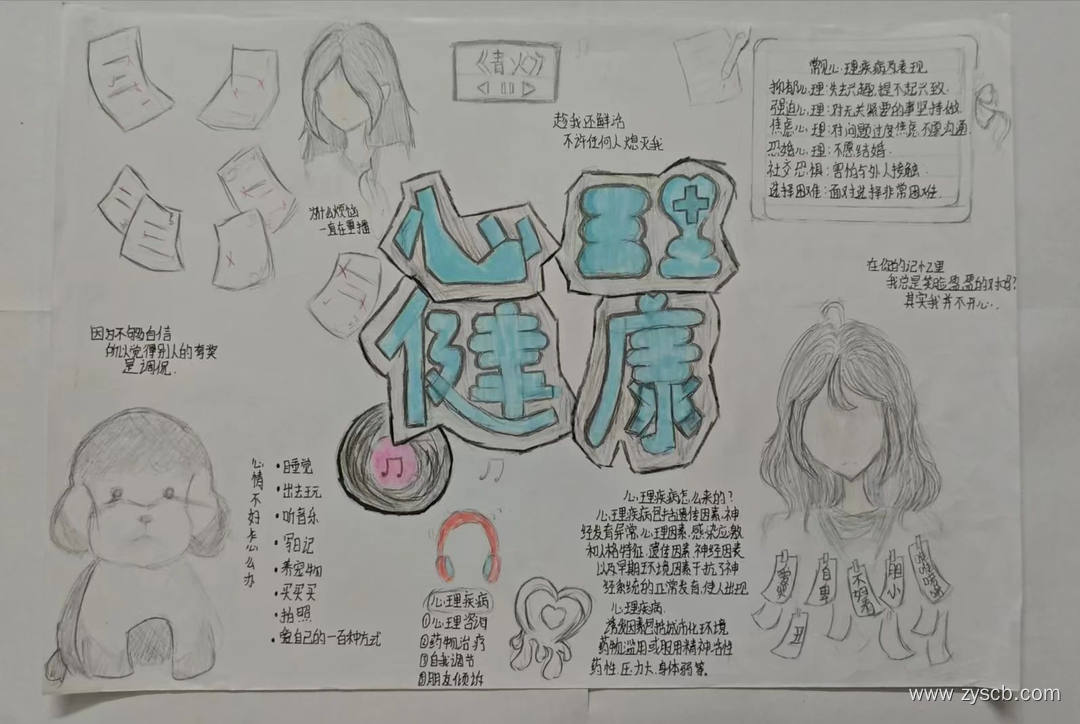 《青火》
趁我还鲜活
不许任何人熄灭我
为什么烦恼
一直在重播
心理
健康
常见心理疾病及表现
抑郁心理:失去兴趣,提不起兴致.
强迫心理:对无关紧要的事坚持做.
焦虑心理:对问题过度焦虑,不要沟通.
恐婚心理:不愿结婚.
社交恐惧:害怕与外人接触.
选择困难:面对选择非常困难.
在你的记忆里
我总是笑脸盈盈的对吗?
其实我并不开心.
因为不够自信
所以觉得别人的夸奖
是调侃.
心情不好怎么办
•睡觉
•出去玩
•听音乐
•写日记
•养宠物
•买买买
•拍照
•爱自己的一百种方式
心理疾病
①心理咨询
②药物治疗
③自我调节
④朋友倾诉
心理疾病怎么来的?
心理疾病包括遗传因素,神
经发育异常,心理因素,感染应激
和人格特征.遗传因素,神经因素
以及早期环境因素干扰了神
经系统的正常发育,使人出现
心理疾病.
诱发因素包括城市化环境
药物滥用或服用精神活性
药性,压力大,身体弱等。
自卑
不好看
胆小
丑
www.zyscb.com